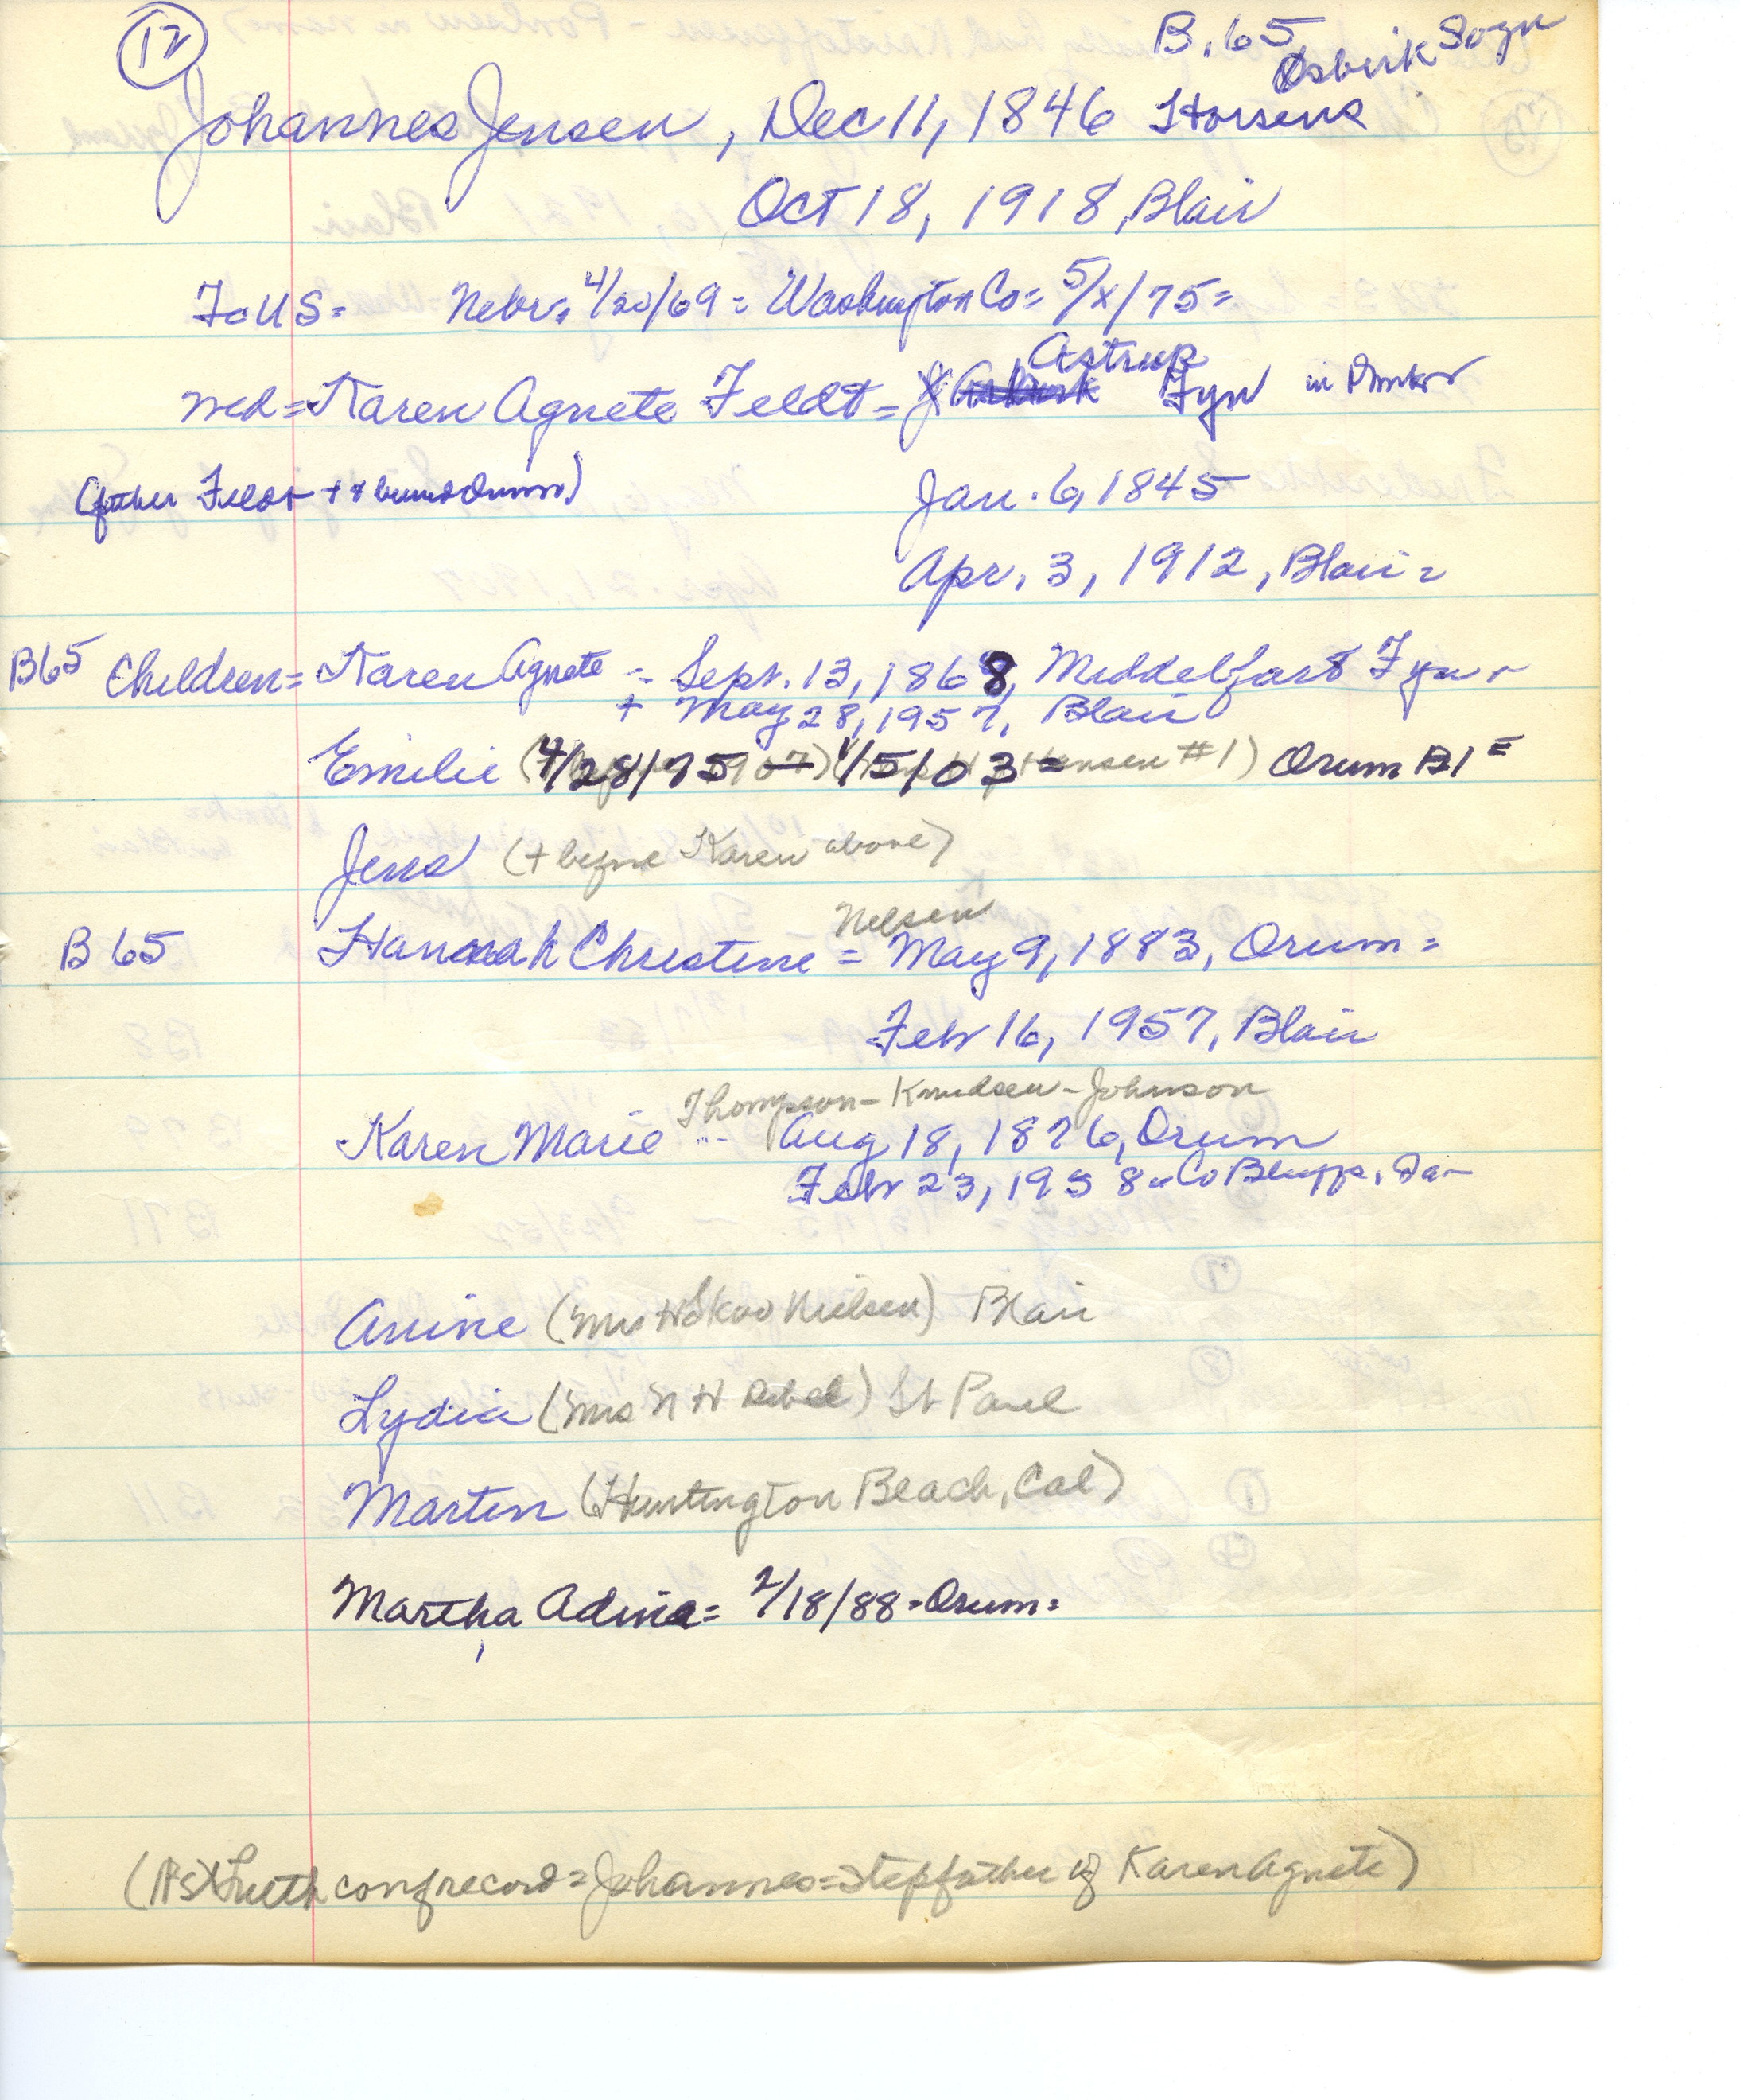 12
B.65
Osbirk Sogn
Johannes Jensen, Dec 11, 1846 Horsens
Oct 18, 1918, Blair
To US= Nebr. 4/20/69 = Washington Co= 5/x/75=
Astrup
med=Karen Agnete Feldt= Fyn in
(father Feldt +
Jan. 6, 1845
Apr. 3, 1912, Blair=
B65 Children= Karen Agnete = Sept. 13, 1868, Middelfart Fyn
+ May 28, 1957, Blair
Emilie (4/28/75 — 1/5/03= Hansen #1) Orum B1=
Jens (+ before Karen above)
Nelsen
B 65 Hannah Christine = May 9, 1883, Orum=
Feb 16, 1957, Blair
Thompson-Knudsen-Johnson
Karen Marie Aug 18, 1876, Orum
Feb 23, 1958 Co Bluffs, Ia
Anine (Mrs H Skov Nielsen) Blair
Lydia (Mrs N H Debel) St Paul
Martin (Huntington Beach, Cal)
Martha Adina= 2/18/88 - Orum=
Luth conf record = Johannes = stepfather of Karen Agnete)